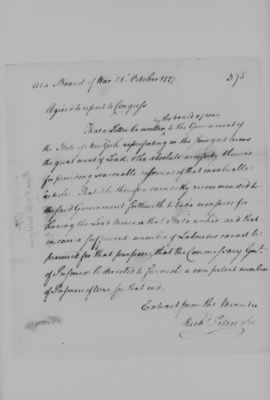 At a Board of War 28 October 1777 375
Agreed to report to Congress
by the board of war
That a Letter be written to the Government of
the State of New York representing in the strongest terms
the great want of Lead, & the absolute necessity there is
for providing seasonable refources of that invaluable
article. That it be therefore earnestly recommended to
the said Government forthwith to take measures for
having the Lead Mines in that State worked and that
in case a sufficient number of Labourers cannot be
procured for that purpose, that the Commissary Genl.
of Prisoners be directed to furnish a competent number
of Prisoners of War for that end.
Extract from the Minutes
Richd. Peters Sec